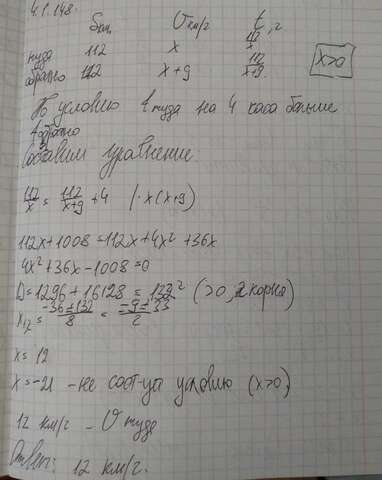 4.1.148.
S км. V км/г t, г
туда 112 x 112/x
обратно 112 x+9 112/x+9 x>0
По условию t туда на 4 часа больше
t обратно
Составим уравнение:
112/x = 112/x+9 + 4 | · x(x+9)
112x+1008=112x+4x²+36x
4x²+36x-1008=0
D=1296+16128=132² (>0, 2 корня)
x₁₂= -36±132/8 = -9±33/2
x=12
x=-21 - не сост-ул условию (x>0)
12 км/г - V туда
Ответ: 12 км/г.